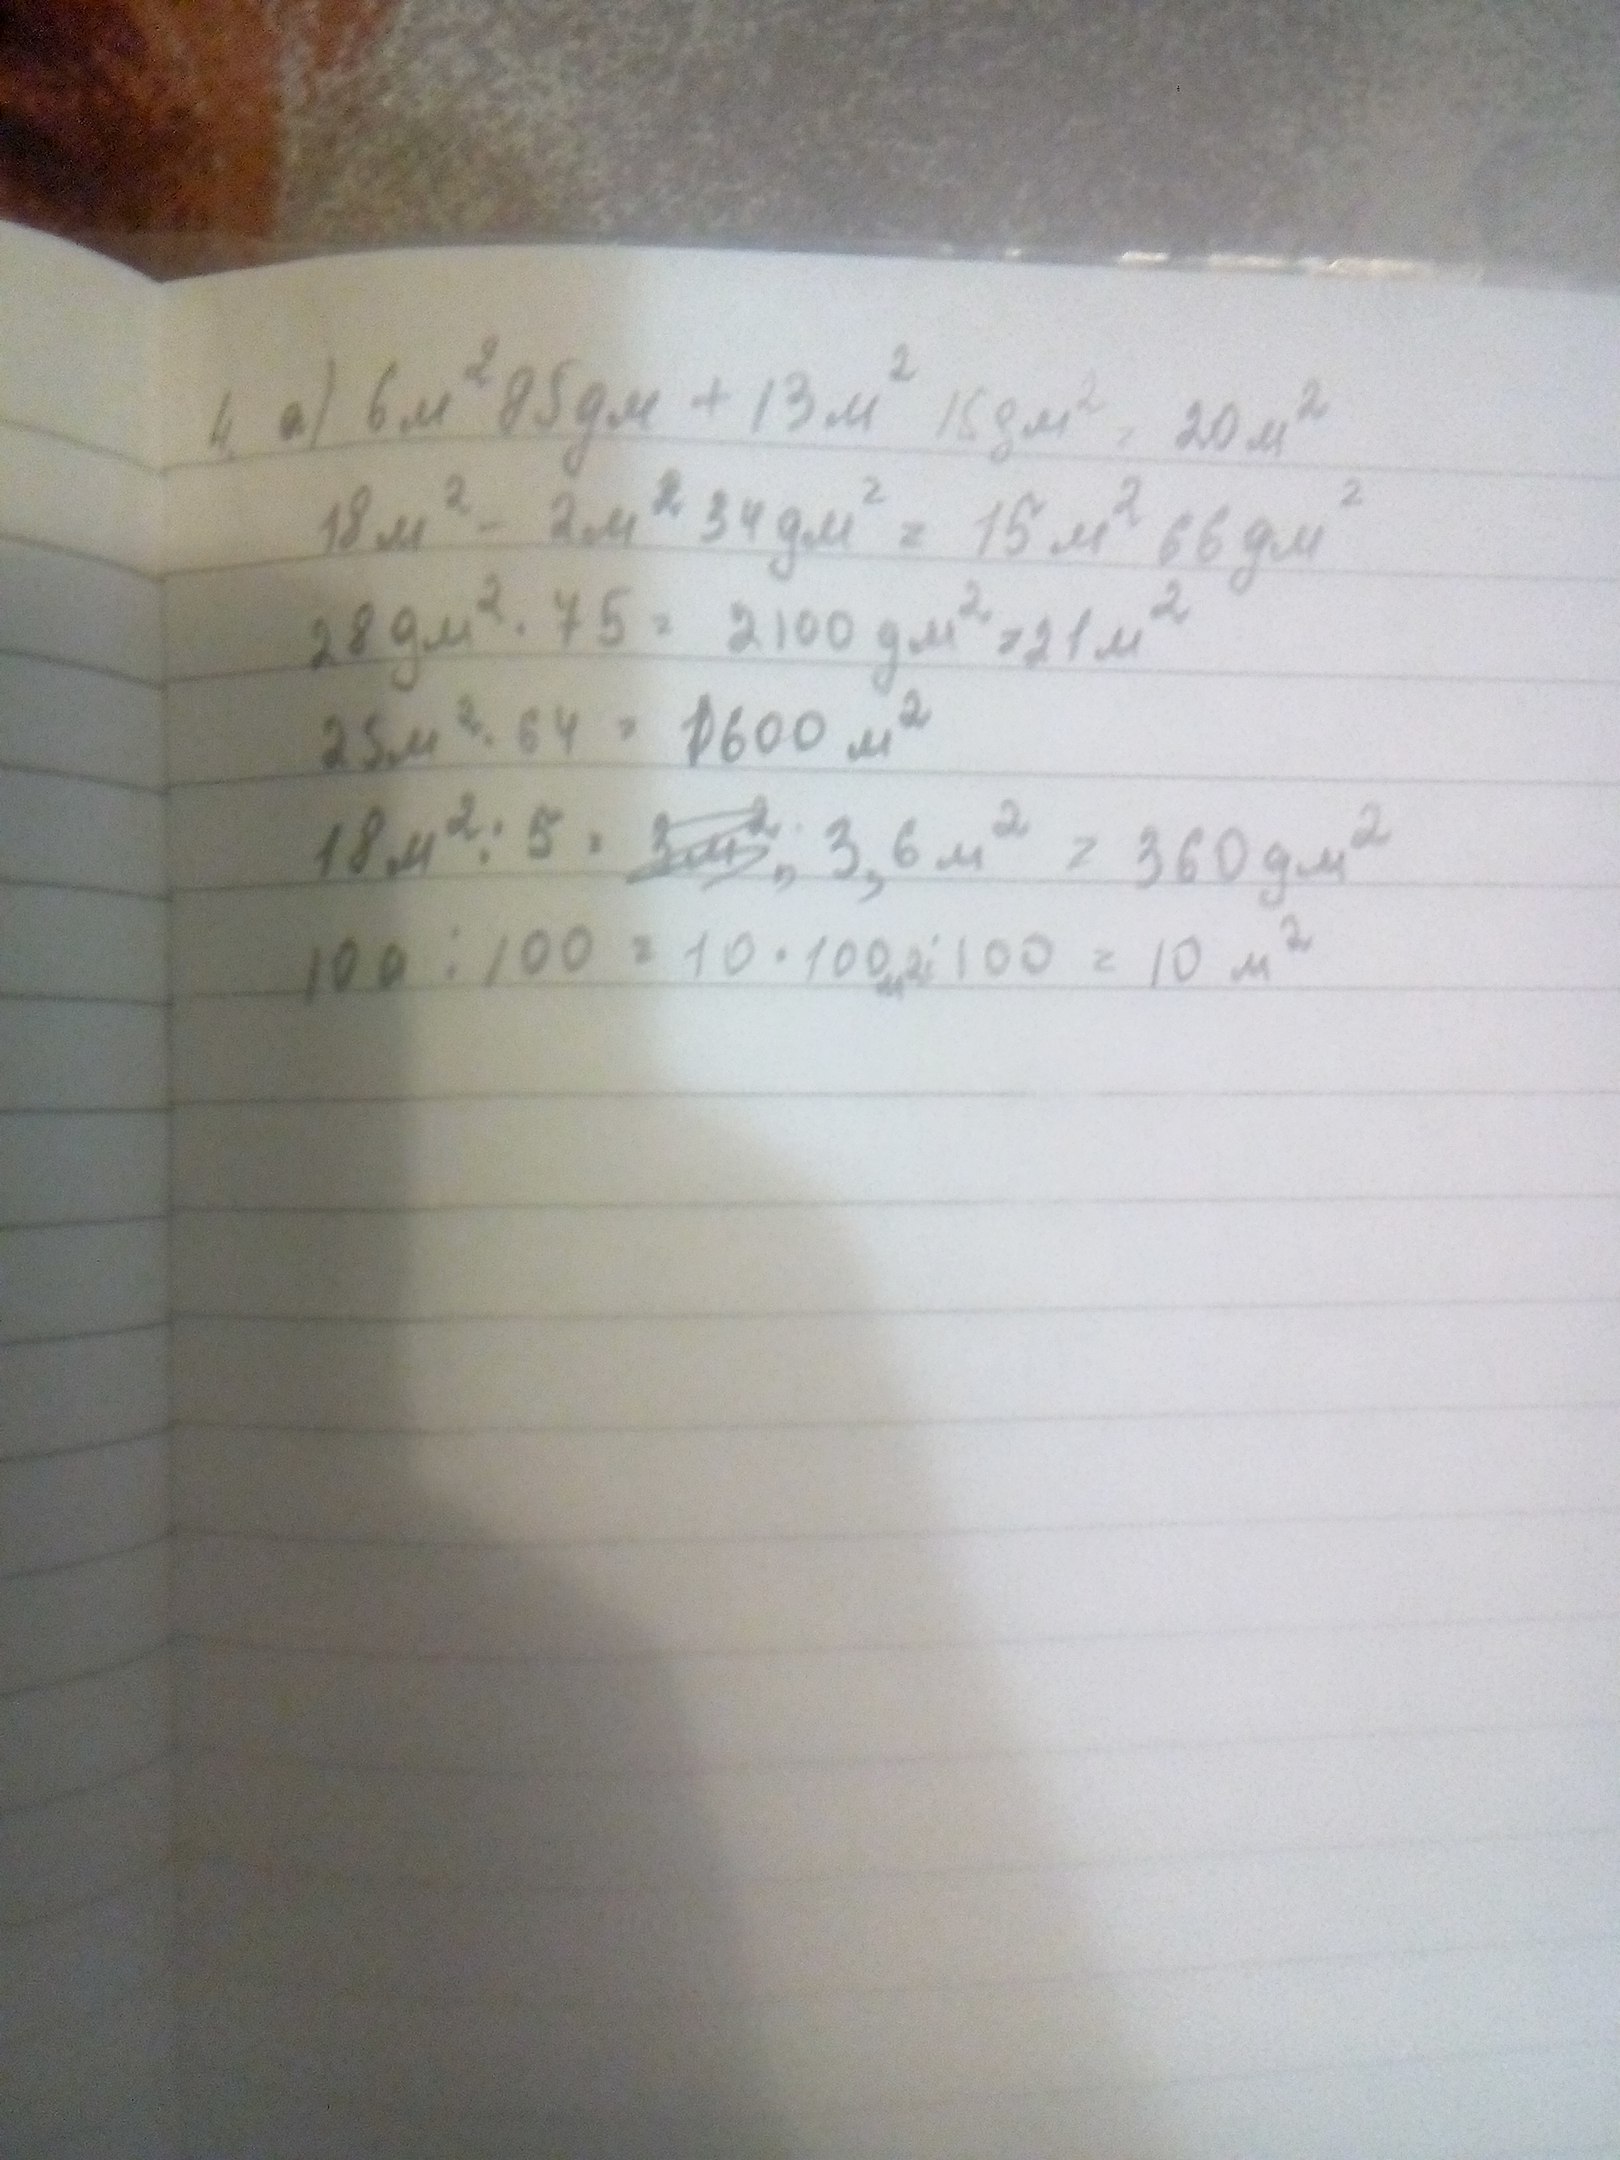 4. а) 6м² 85дм + 13м² 15дм² = 20м²
18м² - 2м² 34дм² = 15м² 66дм²
28дм² · 75 = 2100 дм² = 21м²
25м² · 64 = 1600 м²
18м² : 5 = 3,6м² = 360дм²
100 : 100 = 10 · 100м² : 100 = 10 м²